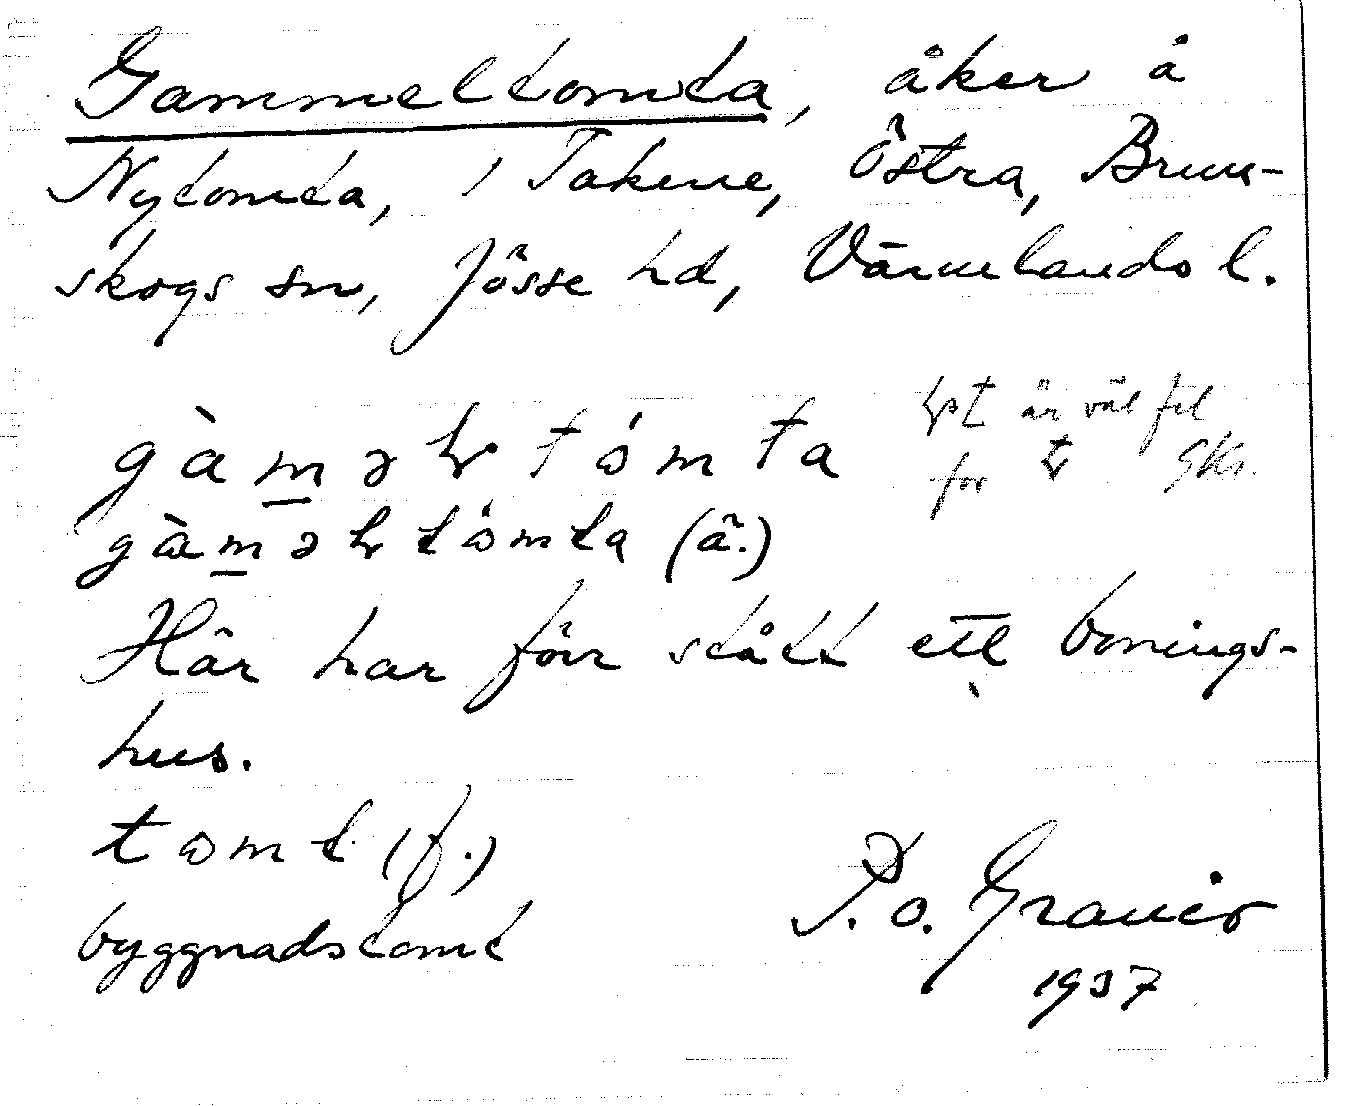 Gammeltomta, åker å
Nytomta, i Takene, Östra, Brun-
skogs sn, Jösse hd, Värmlands l.
är väl fel
för GKr.
(ä.)
Här har förr stått ett bonings-
hus.
tomt (f.)
byggnadstomt
P. o. Graner
1937